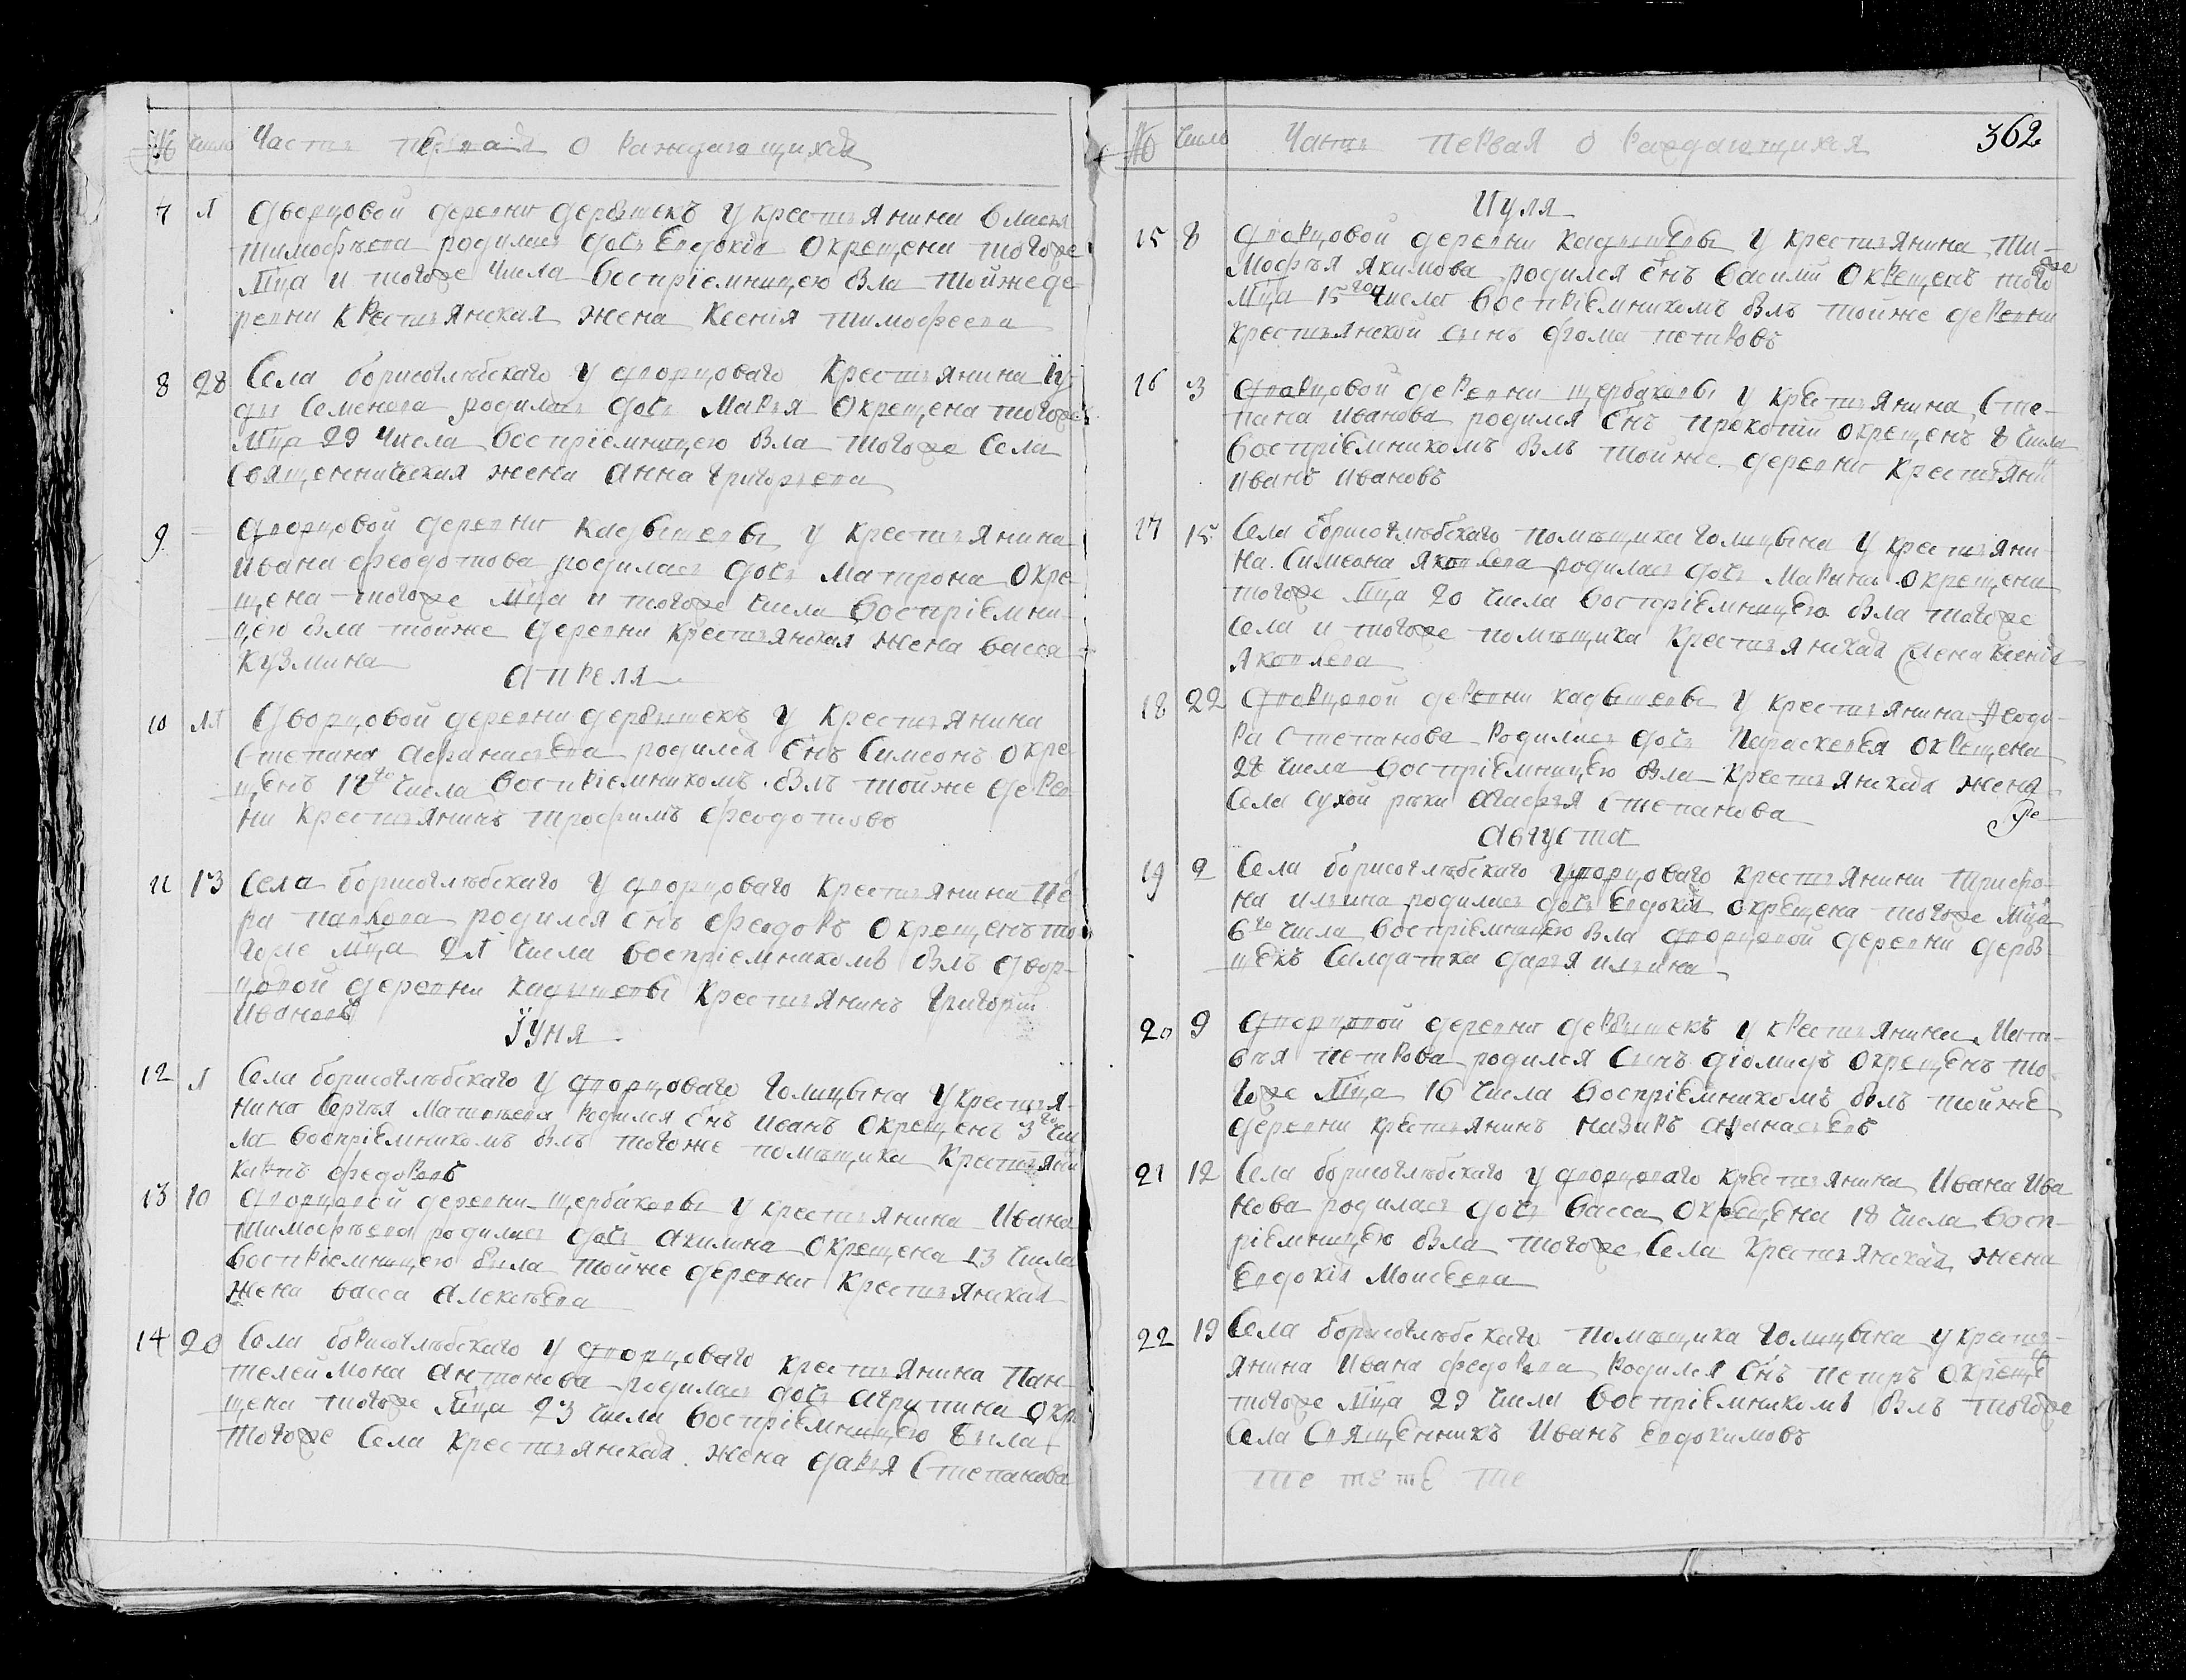 № число Часть первая о раждающихся
7 1 Дворцовой деревни Дербышекъ у крестьянина Власия
Тимофѣева родилась дочь Евдокія окрещена тогоже
мца и тогоже числа воспріемницею была тойже де-
ревни крестьянская жена Ксенія Тимофеева
8 28 Села Борисоглѣбскаго у дворцоваго крестьянина Іу-
ды Семенова родилась дочь Марья окрещена тогоже
мца 29 числа воспріемницею была тогоже села
священническая жена Анна Григорьева
9 — Дворцовой деревни Кадышевы у крестьянина
Ивана Феодотова родилась дочь Матрона окре
щена тогоже мца и тогоже числа воспріемни-
цею была тойже деревни крестьянская жена Васса
Кузмина
Апреля
10 11 Дворцовой деревни Дербышекъ у крестьянина
Степана Афанасьева родился снъ Симеонъ окре
щенъ 12го числа воспріемникомъ былъ тойже дерев
ни крестьянинъ Трофимъ Феодотовъ
11 13 Села Борисоглѣбскаго у дворцоваго крестьянина Пе
ра Павлова родился снъ Феодоръ окрещенъ то
гоже мца 21 числа воспріемникомъ былъ двор-
цовой деревни Кадышевы крестьянинъ Григорій
Ивановъ
Іуня
12 1 Села Борисоглѣбскаго у дворцоваго Голицына у крестья-
нина Сергѣя Матвѣева родился снъ Иванъ окрещенъ 3го чис
ла воспріемникомъ былъ тогоже помѣщика крестьянин
Карпъ Федоровъ
13 10 Дворцовой деревни Щербаковы у крестьянина Ивана
Тимофѣева родилась дочь Акилина окрещена 13 числа
воспріемницею была тойже деревни крестьянская
жена Васса Алексѣева
14 20 Села Борисоглѣбскаго у дворцоваго крестьянина Пан-
телеймона Антонова родилась дочь Агрипина окре
щена тогоже мца 23 числа воспріемницею была
тогоже села крестьянская жена Дарья Степанова
№ число Часть первая о раждающихся 362
Иуля
15 8 Дворцовой деревни Кадышевы у крестьянина Ти-
мофѣя Якимова родился снъ Василий окрещенъ тогоже
мца 15го числа воспріемникомъ былъ тойже деревни
крестьянской сынъ Фома Петровъ
16 3 Дворцовой деревни Щербаковы у крестьянина Сте-
пана Иванова родился снъ Прокопий окрещенъ 8 числа
воспріемникомъ былъ тойже деревни крестьянин
Иванъ Ивановъ
17 15 Села Борисоглѣбскаго помѣщика Голицына у крестьяни
на Симеона Яковлева родилась дочь Марина окрещена
тогоже мца 20 числа воспріемницею была тогоже
села и тогоже помѣщика крестьянская жена Ксенія
Яковлева
18 22 Дворцовой деревни Кадышевы у крестьянина Феодо-
ра Степанова родилась дочь Параскевѣя окрещена
28 числа воспріемницею была крестьянская жена
села Сухой реки Агафья Степанова
Августа
19 2 Села Борисоглѣбскаго у дворцоваго крестьянина Трифо-
на Ильина родилась дочь Евдокія окрещена тогоже мца
6го числа воспріемницею была дворцовой деревни Дербы
шекъ салдатка Дарья Ильина
20 9 Дворцовой деревни Дербышекъ у крестьянина Мат-
вѣя Петрова родился сынъ Діомидъ окрещенъ то-
гоже мца 16 числа воспріемникомъ былъ тойже
деревни крестьянинъ Назаръ Афанасьевъ
21 12 Села Борисоглѣбскаго у дворцоваго крестьянина Ивана Ива
нова родилась дочь Васса окрещена 18 числа восп-
ріемницею была тогоже села крестьянская жена
Евдокія Моисеева
22 19 Села Борисоглѣбскаго помѣщика Голицына у кресть-
янина Ивана Федорова родился снъ Петръ окреще
тогоже мца 29 числа воспріемникомъ былъ тогоже
села священникъ Иванъ Евдокимовъ
те те те те